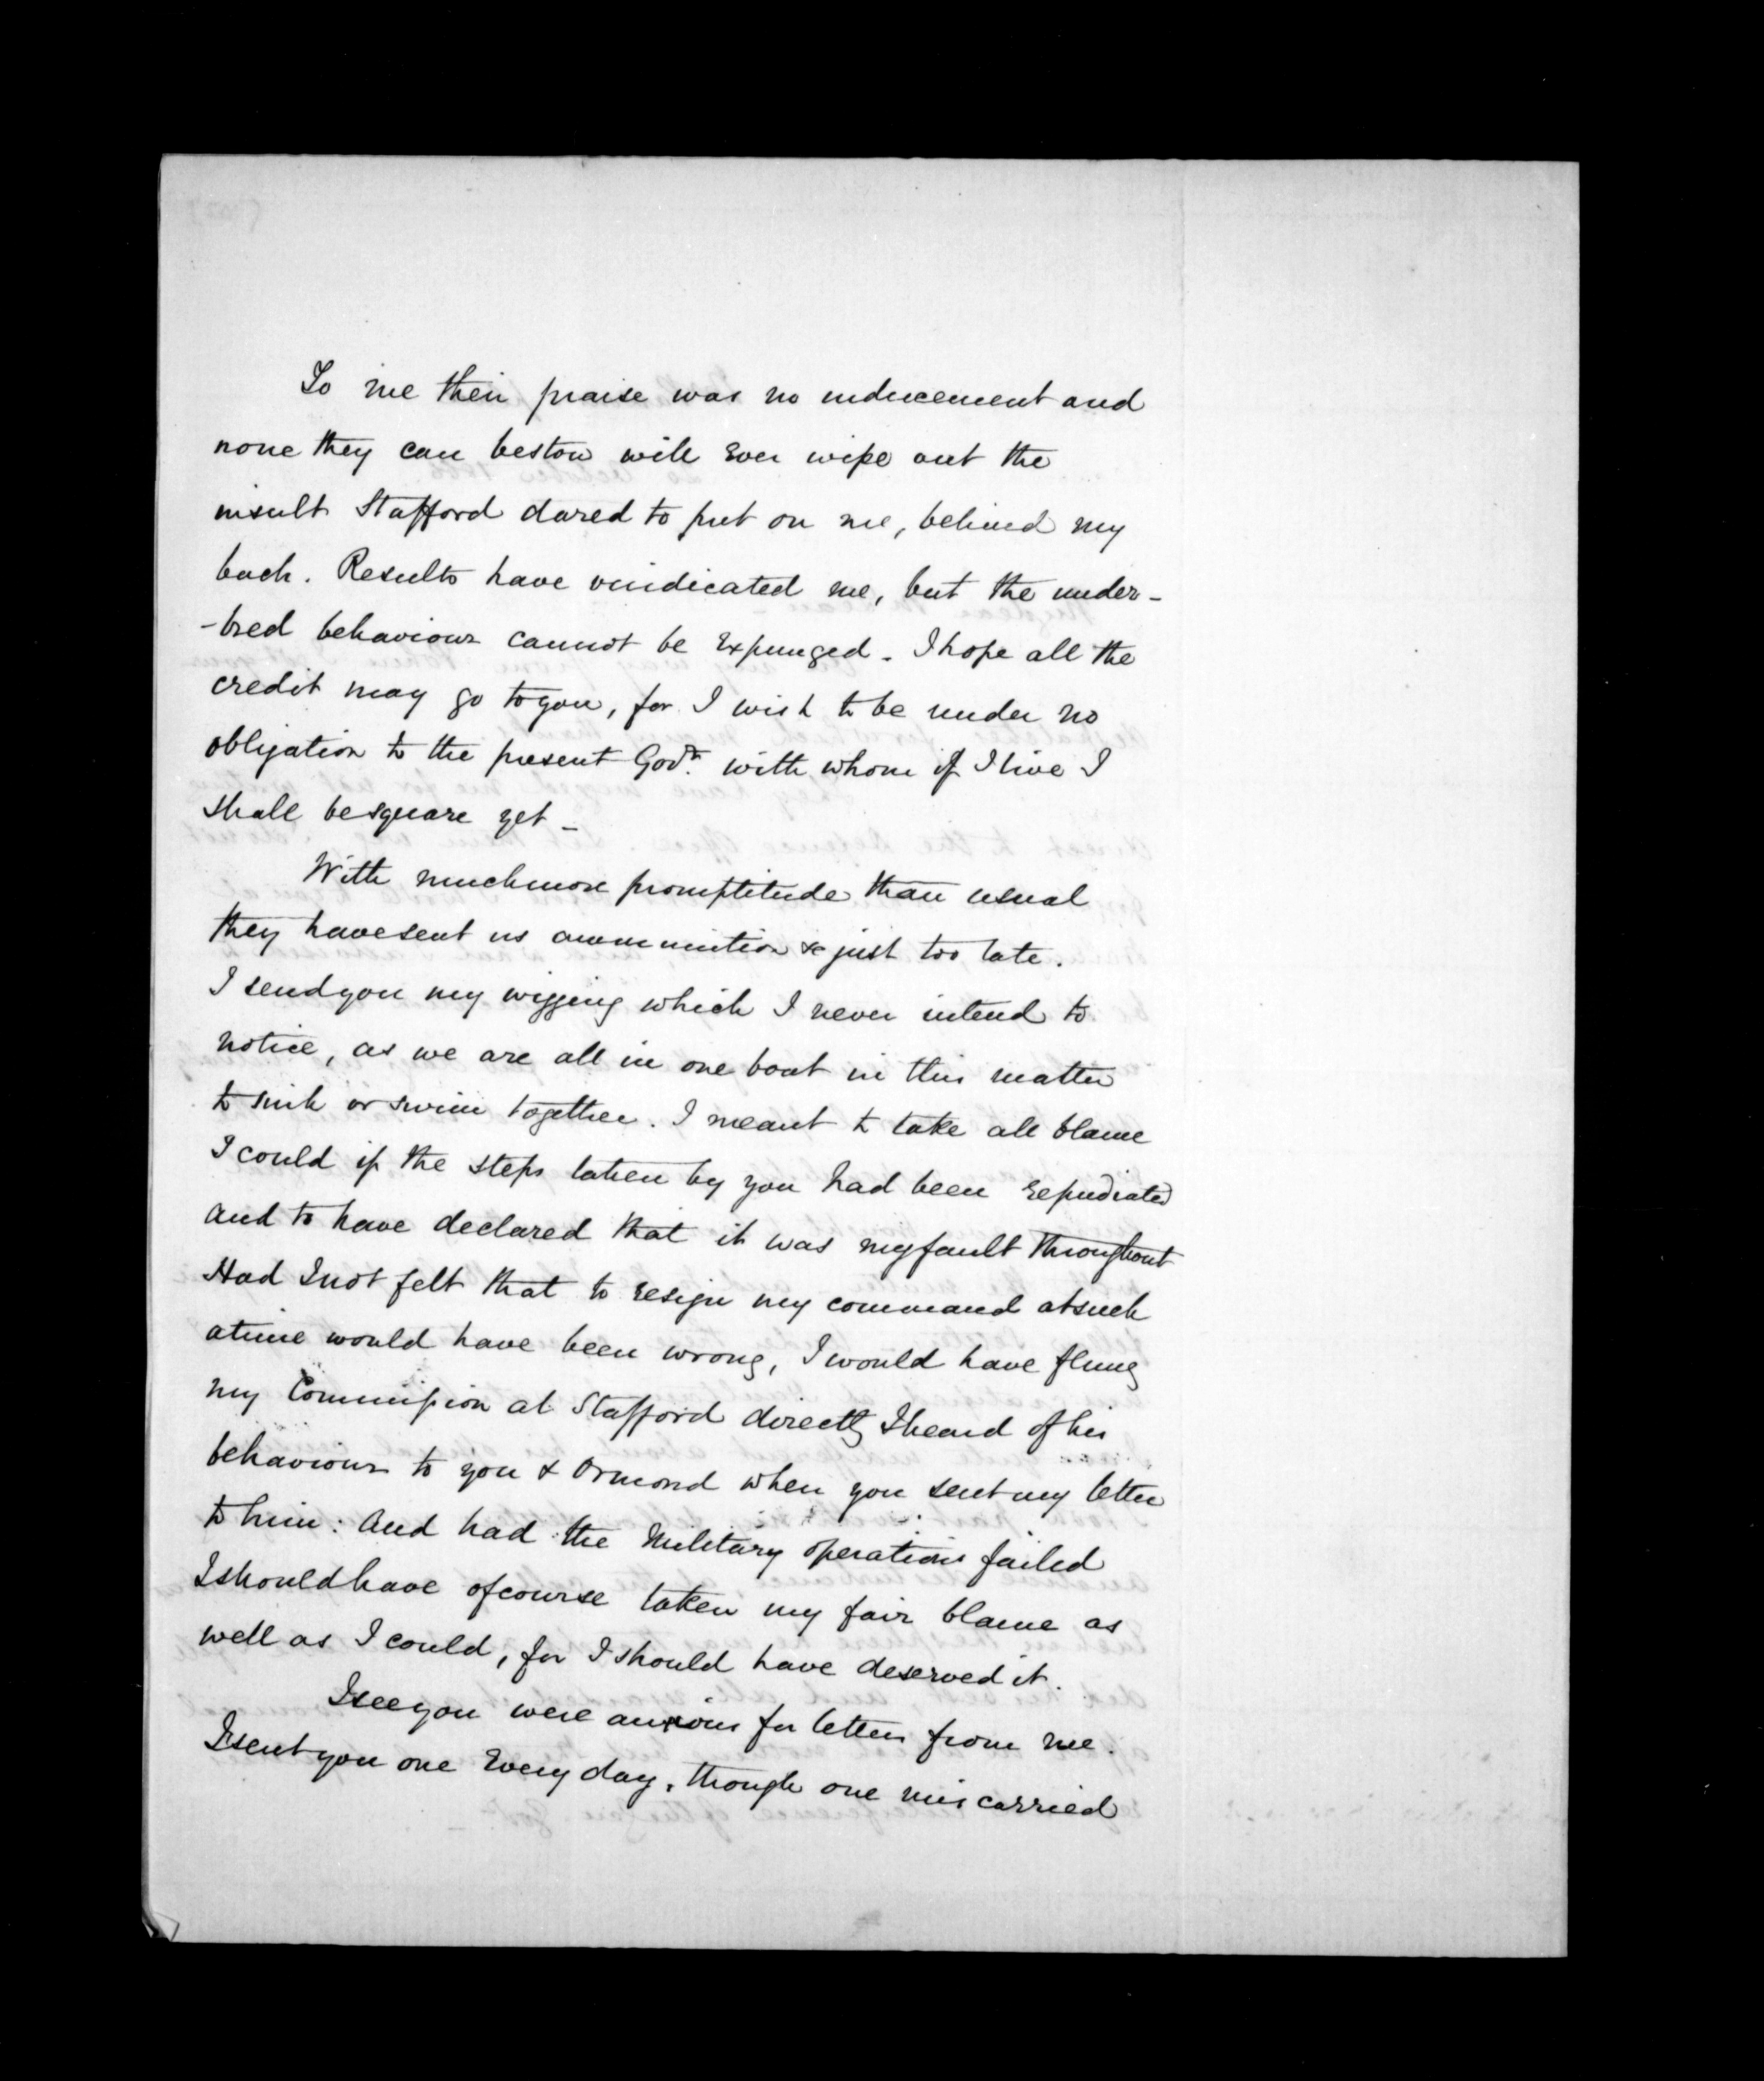 To me their praise was no inducement and
none they can bestow will ever wipe out the
insult Stafford dared to put on me, behind my
back. Results have vindicated me, but the under-
-bred behaviour cannot be expunged. I hope all the
credit may go to you, for I wish to be under no
obligation to the present Govt. with whom if I live I
shall be square yet _
With much more promptitude than usual
they have sent us ammunition &c just too late.
I send you my wigging which I never intend to
notice, as we are all in one boat in this matter
to sink or swim together. I meant to take all blame
I could if the steps taken by you had been repudiated
and to have declared that it was my fault throughout
Had I not felt that to resign my command at such
a time would have been wrong, I would have flung
my Commission at Stafford directly I heard of his
behaviour to you & Ormond when you sent my letter
to him: And had the Military operations failed
I should have of course taken my fair blame as
well as I could, for I should have deserved it.
I see you were anxious for letters from me.
I sent you one every day, though one miscarried